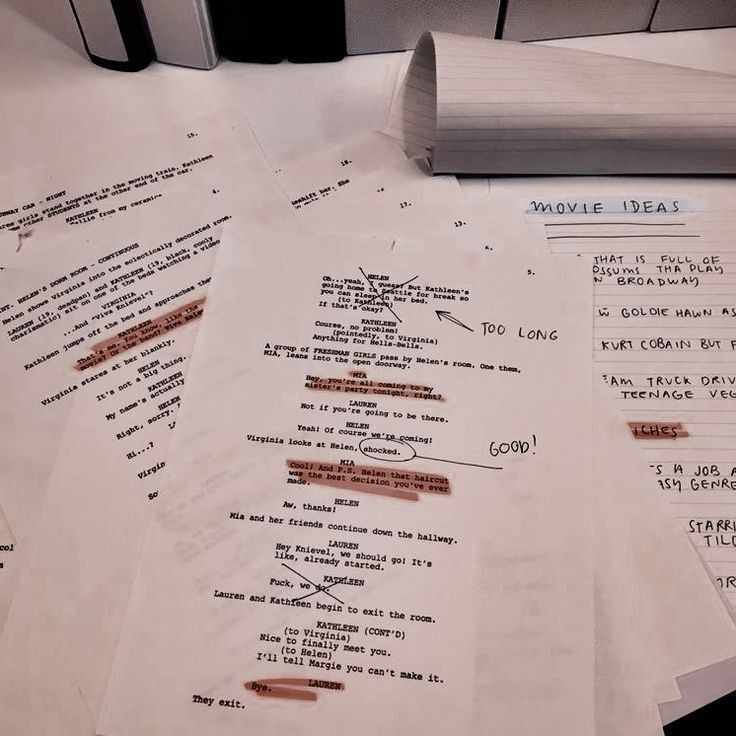 15.
SUBWAY CAR - NIGHT
three girls stand together in the moving train. Kathleen
some other STUDENTS at the other end of the car.
KATHLEEN
from my ceramics
4.
INT. HELEN'S DORM ROOM - CONTINUOUS
Helen shows Virginia into the eclectically decorated room.
LAUREN (19, deadpan) and KATHLEEN (19, black, cooly
charismatic) sit on one of the beds watching a video
VIRGINIA
...And "Viva Knievel"?
Kathleen jumps off the bed and approaches the
KATHLEEN
That's me. You know, like the
movie? Or the band? Viva
Virginia stares at her blankly.
HELEN
It's not a big thing.
KATHLEEN
My name's actually
HELEN
Right, sorry.
Hi...?
Virgin
So
18.
makeshift bar. She
17.
13.
6.
5.
HELEN
Oh...yeah, I guess? But Kathleen's
going home to Seattle for break so
you can sleep in her bed.
(to Kathleen)
If that's okay?
TOO LONG
KATHLEEN
Course, no problem!
(pointedly, to Virginia)
Anything for Hells-Bells.
A group of FRESHMAN GIRLS pass by Helen's room. One them,
MIA, leans into the open doorway.
MIA
Hey, you're all coming to my
sister's party tonight, right?
LAUREN
Not if you're going to be there.
HELEN
Yeah! Of course we're coming!
Virginia looks at Helen, shocked.
GOOD!
MIA
Cool! And P.S. Helen that haircut
was the best decision you've ever
made.
HELEN
Aw, thanks!
Mia and her friends continue down the hallway.
LAUREN
Hey Knievel, we should go! It's
like, already started.
KATHLEEN
Fuck, we do.
Lauren and Kathleen begin to exit the room.
KATHLEEN (CONT'D)
(to Virginia)
Nice to finally meet you.
(to Helen)
I'll tell Margie you can't make it.
LAUREN
Bye.
They exit.
MOVIE IDEAS
THAT IS FULL OF
OSSUMS THA PLAY
N BROADWAY
W GOLDIE HAWN AS
KURT COBAIN BUT F
AM TRUCK DRIV
TEENAGE VEG
ICHES
'S A JOB A
ASY GENRE
STARRI
TILD